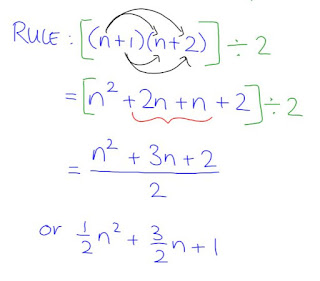 RULE: [(n+1)(n+2)] ÷ 2
= [n² + 2n + n + 2] ÷ 2
= (n² + 3n + 2)/2
or 1/2 n² + 3/2 n + 1